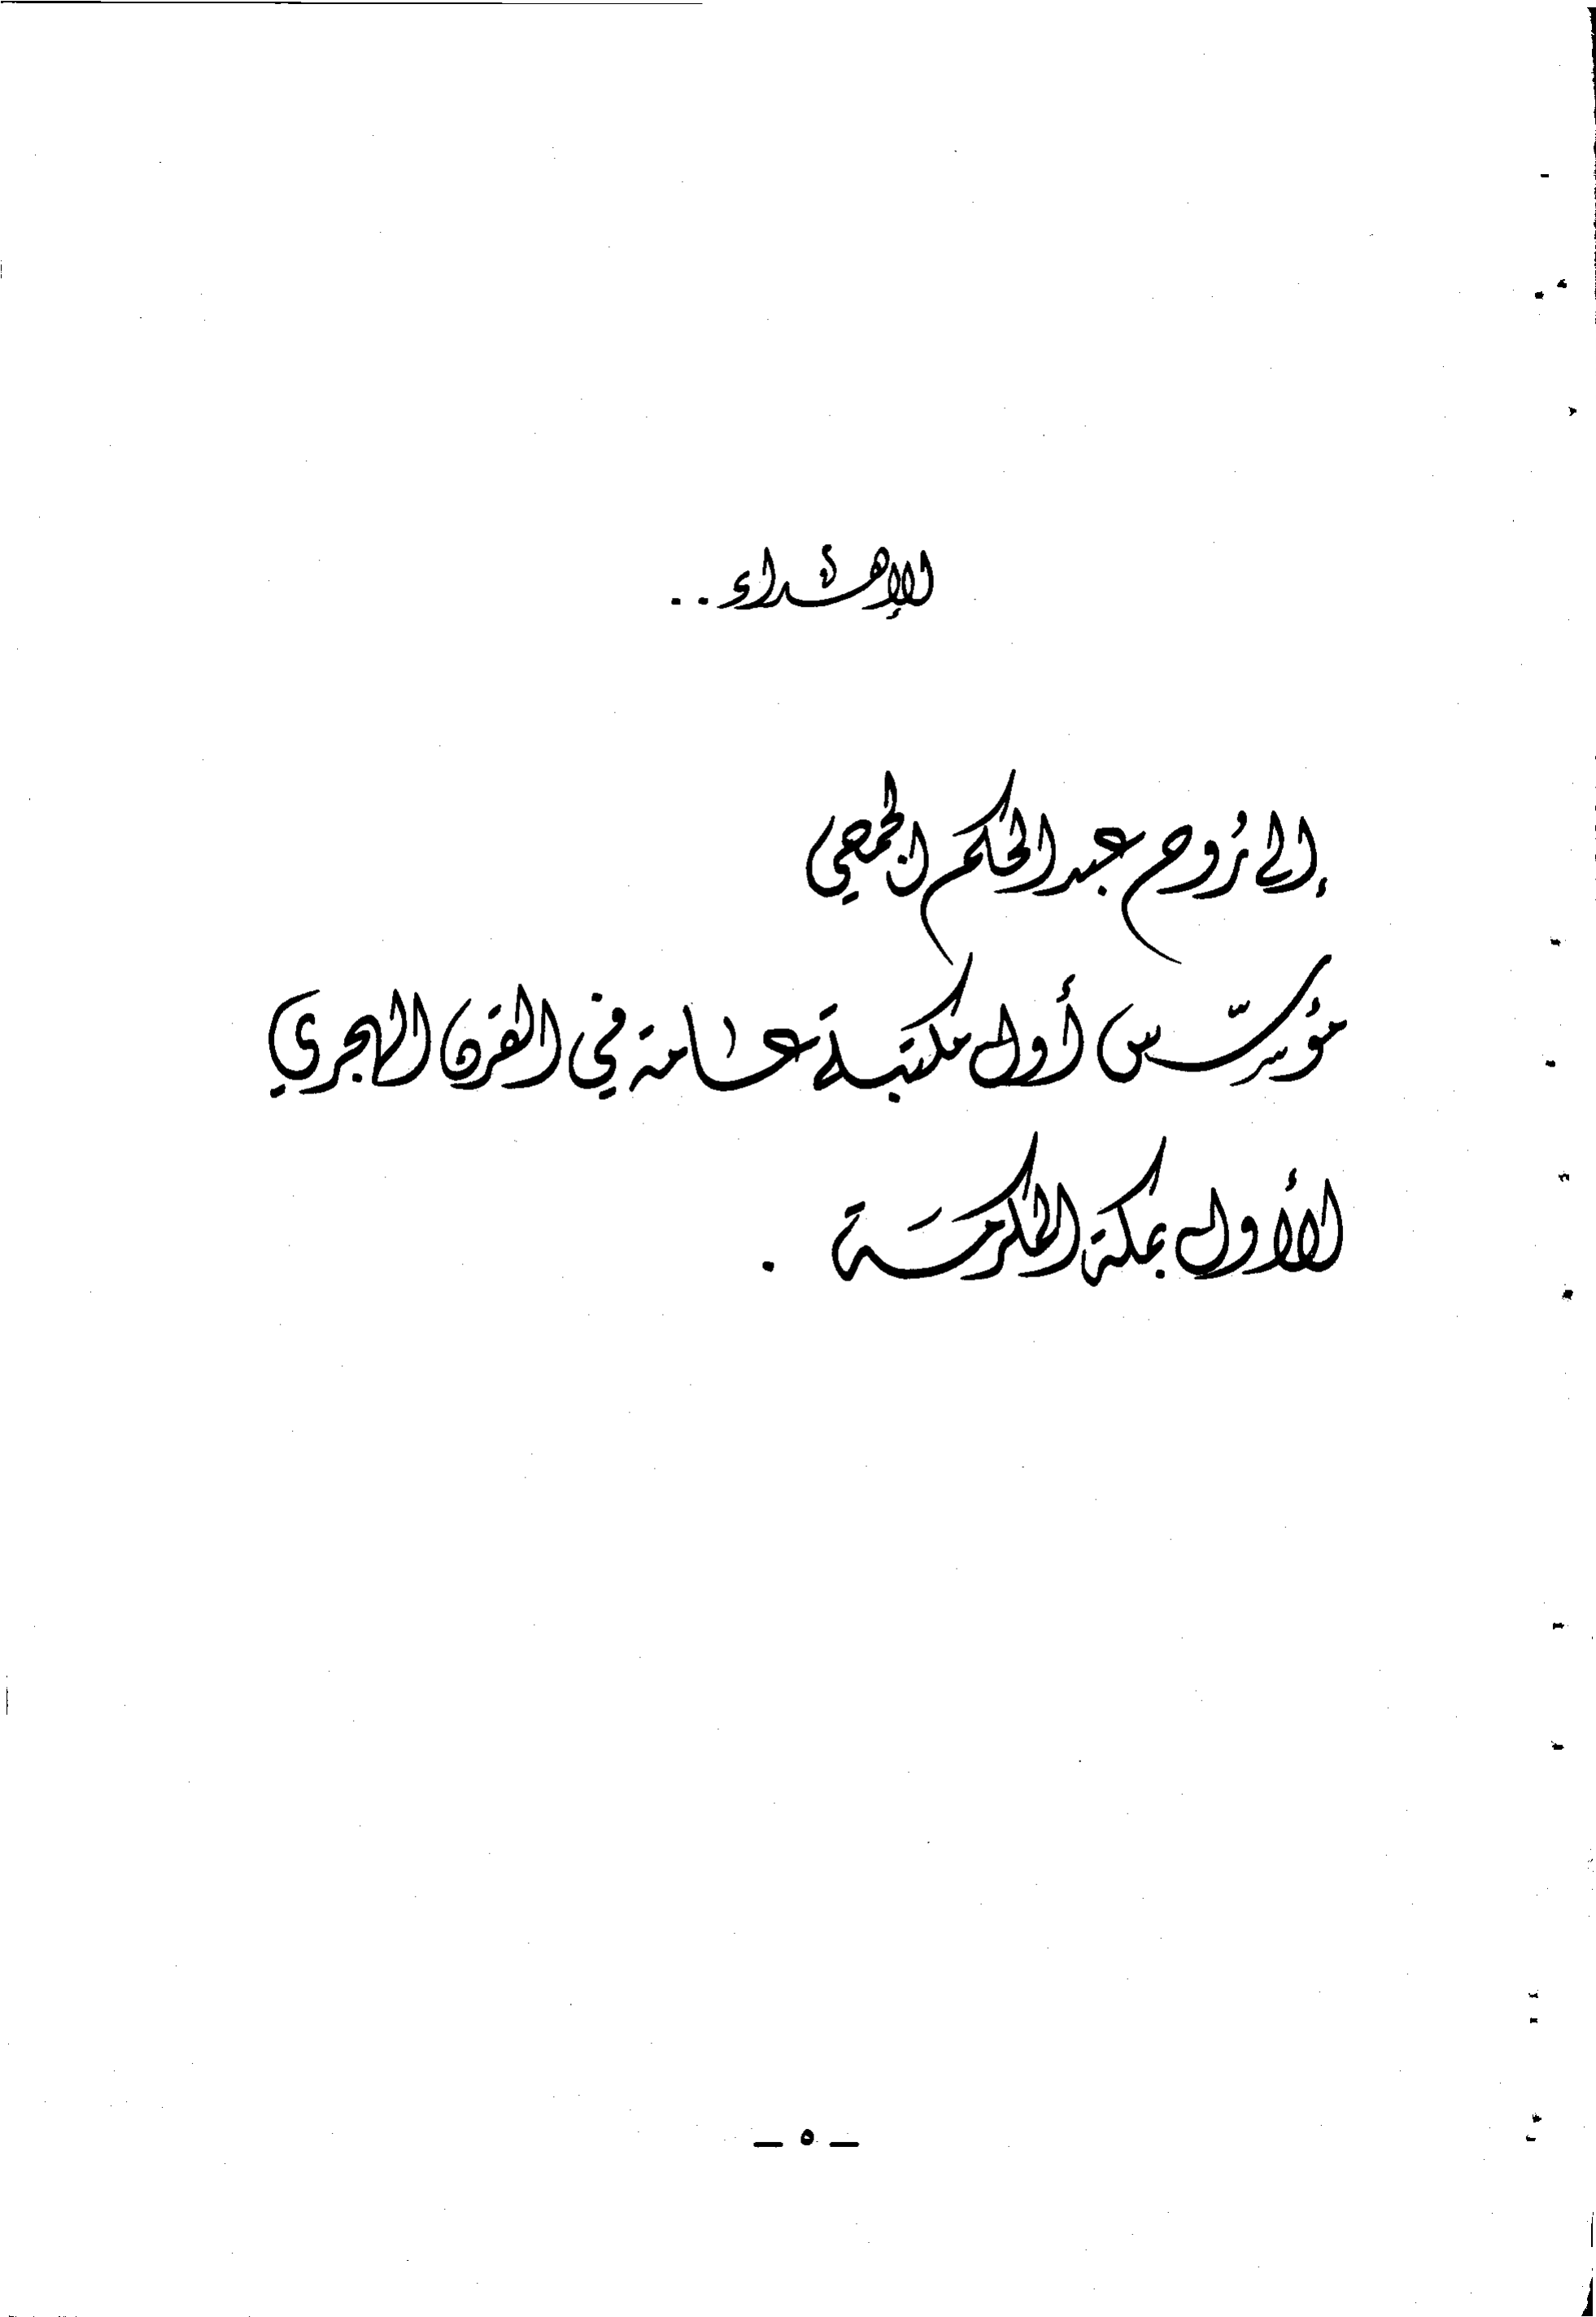 الإهداء..
إلى رُوح عبد الحكم الجمحي
مؤسّس أول مكتبة عامة في القرن الهجري
الأول بمكة المكرمَة .
— ٥ —